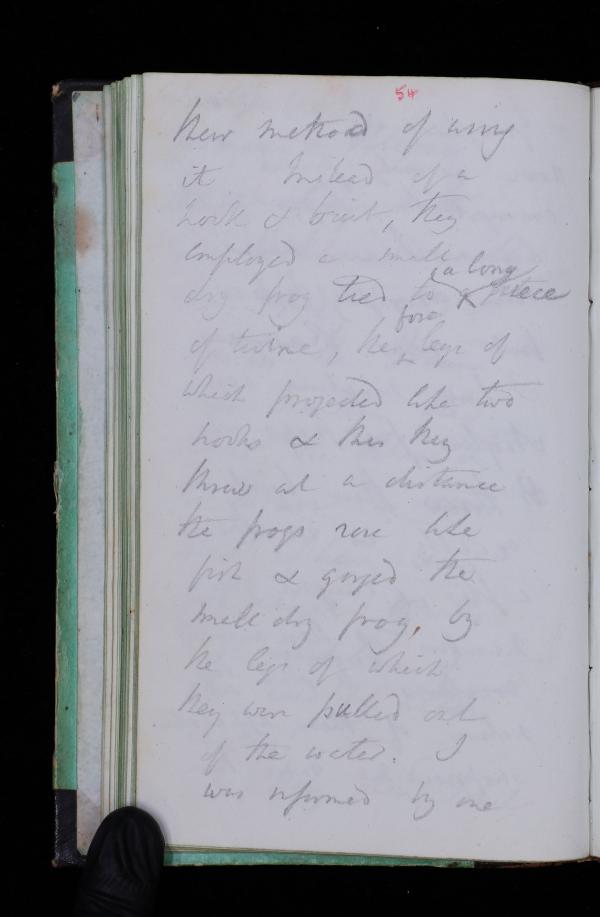 54
their method of using
it Instead of a
hook & bait, they
employed a small
dry frog tied to (a long
piece
of twine, the fore legs of
which projected like two
hooks & this they
threw at a distance
the frogs rose like
fish & gorged the
small dry frog, by
the legs of which
they were pulled out
of the water. I
was informed by one